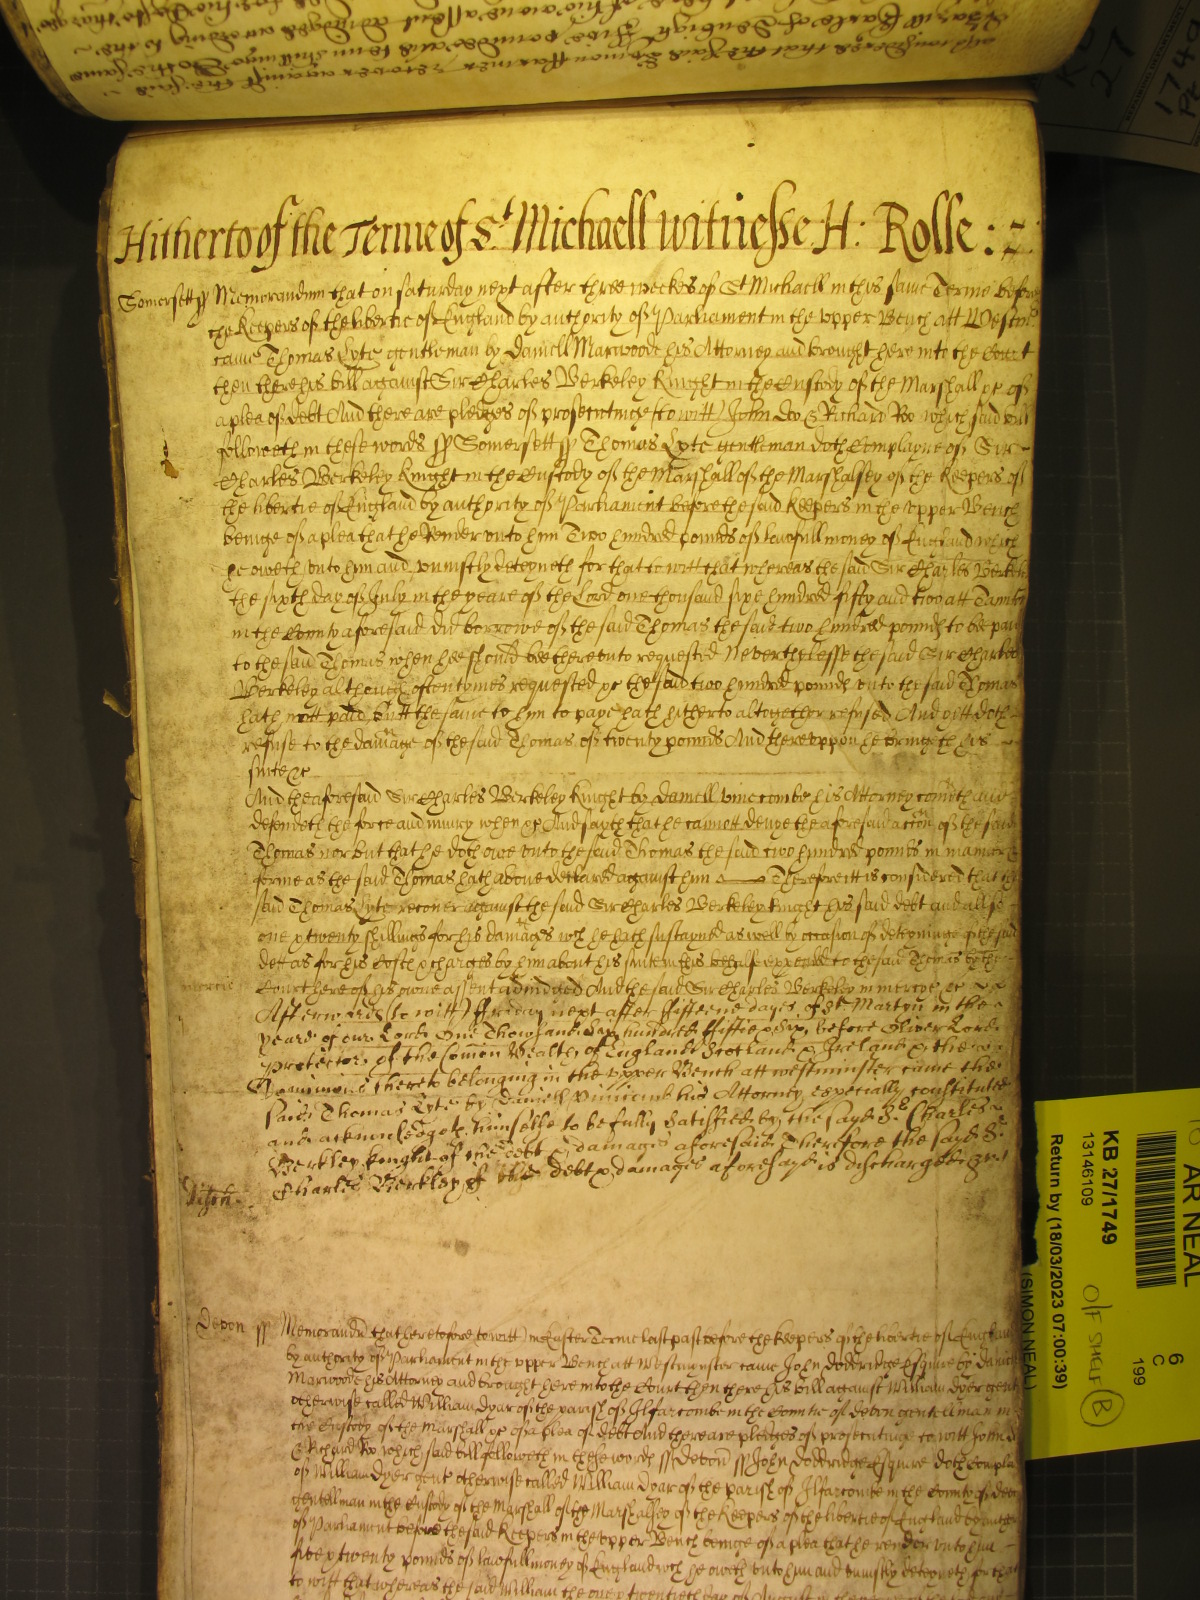 Hitherto of the Terme of St Michaell witnesse H: Rolle :
Somersett ss Memorandum that on saturday next after three weekes of St Michaell in this same Terme before
the Keepers of the libertie of England by authority of Parliament in the upper Bench att Westm
came Thomas Lyte gentleman by Daniell Marwoode his Attorney and brought here into the Court
then there his bill against Sir Charles Berkeley Knight in the Custody of the Marshall &c of
a plea of debt And there are pledges of prosecutinge (to witt) John Do & Richard Ro which said bill
followeth in these words ss Somersett ss Thomas Lyte gentleman doth Complayne of Sir
Charles Berkeley Knight in the Custody of the Marshall of the Marshalsey of the Keepers of
the libertie of England by authority of Parliament before the said Keepers in the upper Bench
beinge of a plea that he Render unto him Two hundred pounds of lawfull money of England which
he oweth unto him and uniustly deteyneth for that to witt that whereas the said Sir Charles Berkeley
the sixth day of July in the yeare of the Lord one thousand sixe hundred fifty and two att
in the County aforesaid did borrowe of the said Thomas the said two hundred pounds to be paid
to the said Thomas when hee should be thereunto requested Neverthelesse the said Sir Charles
Berkeley although oftentymes requested &c the said two hundred pounds unto the said Thomas
hath nott paid butt the same to him to paye hath hitherto altogether refused And yitt doth
refuse to the damage of the said Thomas of twenty pounds And thereuppon he bringeth his
suite &c
And the aforesaid Sir Charles Berkeley Knight by Daniell vinecombe his Attorney cometh and
defendeth the force and iniury when &c And sayth that he cannott denye the aforesaid accon of the said
Thomas nor but that he doth owe unto the said Thomas the said two hundred pounds in manner &
forme as the said Thomas hath above declared against him Therefore itt is considered that the
said Thomas Lyte recover against the said Sir Charles Berkeley Knight his said debt and allso
one & twenty shillings for his damages wch he hath sustayned as well by occasion of deteyninge of the said
dett as for his Costs & charges by him about his suite in this behalfe expended to the said Thomas by the
mercie Court here of his owne assent adiudged And the said Sir Charles Berkeley in mercie &c
Afterwards (to witt) ffriday next after fifteene dayes of St Martyn in the
yeare of our Lord One Thowsand Six hundred ffiftie & six before Oliver Lord
Protector of the Comon Wealth of England Scotland & Ireland & the
Dominions thereto belonging in the upper Bench att westminster came the
said Thomas Lyte by Daniell his Attorney especially constituted
and acknowledged himselfe to be fully Satisfied by the sayd Sr Charles
Berkley Knight of the debt & damages aforesaid Therefore the sayd Sr
Charles Berkley of the debt & damages aforesayd is discharged &c
Devon ss Memorand that heretofore (to witt) in Easter Terme last past before the Keepers of the libertie of England
by authority of Parliament in the upper Bench att Westminster came John Doddridge Esquire by Daniell
Marwoode his Attorney and brought here into the Court then there his bill against William Dyer gent
otherwise called William Dyar of the parish of Ilfarcombe in the Countie of Devon gentellman in
the Custody of the Marshall &c of a plea of debt And there are pledges of prosecuting to witt John Do
& Richard Ro which said bill followeth in these words ss Devon ss John Doddridge Esquire doth Compla
of William Dyer gent otherwise called William Dyar of the parish of Ilfarcombe in the County of Devon
gentellman in the Custody of the Marshall of the Marshalsey of the Keepers of the libertie of England by autho
of Parliament before the said Keepers in the upper Bench beinge of a plea that he render unto him
five & twenty pounds of lawfull money of England wch he oweth unto him and uniustly deteyneth for that
to witt that whereas the said William the one & twentieth day of August in the
AR NEAL
KB 27/1749
13146109
Return by (18/03/2023 07:00:39)
(SIMON NEAL)
O/F SHELF B
6
C
199
27